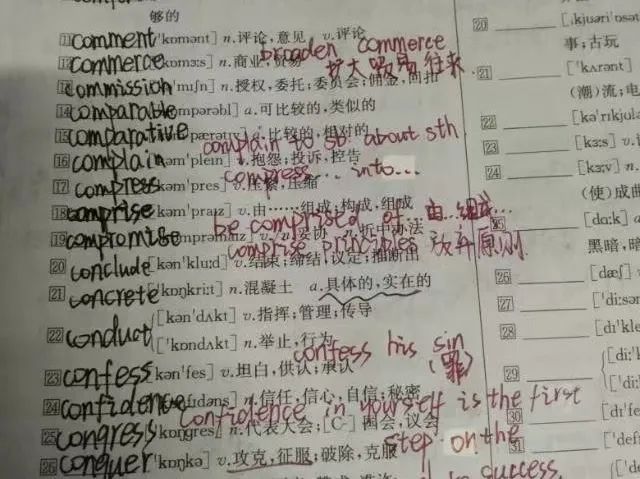 够的
11 comment ['kɒmənt] n.评论,意见 v.评论
broaden commerce
12 commerce ['kɒmɜːs] n.商业,贸易
扩大贸易往来
13 commission [kə'mɪʃn] n.授权,委托;委员会;佣金,回扣
14 comparable ['kɒmpərəbl] a.可比较的,类似的
15 comparative [kəm'pærətɪv] a.比较的,相对的
complain to sb. about sth
16 complain [kəm'pleɪn] v.抱怨;投诉,控告
compress... into...
17 compress [kəm'pres] v.压紧,压缩
18 comprise [kəm'praɪz] v.由……组成;构成,组成
be comprised of... 由...组成...
19 compromise ['kɒmprəmaɪz] n./v.妥协 n.折中办法
comprise principles 放弃原则
20 conclude [kən'kluːd] v.结束;缔结,议定;推断出
21 concrete ['kɒŋkriːt] n.混凝土 a.具体的,实在的
22 conduct [kən'dʌkt] v.指挥;管理;传导
['kɒndʌkt] n.举止,行为
confess his sin
(罪)
23 confess [kən'fes] v.坦白,供认;承认
24 confidence ['kɒnfɪdəns] n.信任,信心,自信;秘密
Confidence in yourself is the first
25 congress ['kɒŋgres] n.代表大会;[C-]国会,议会
step on the
26 conquer ['kɒŋkə] v.攻克,征服;破除,克服
success
20
事;古玩
21 ['kʌrənt]
(潮)流;电
22
23 [kɜːs]
24 [kɜːv] n.
(使)成曲
[dɑːk] a
黑暗,暗
26 [dæf]
27
28
29
30
31